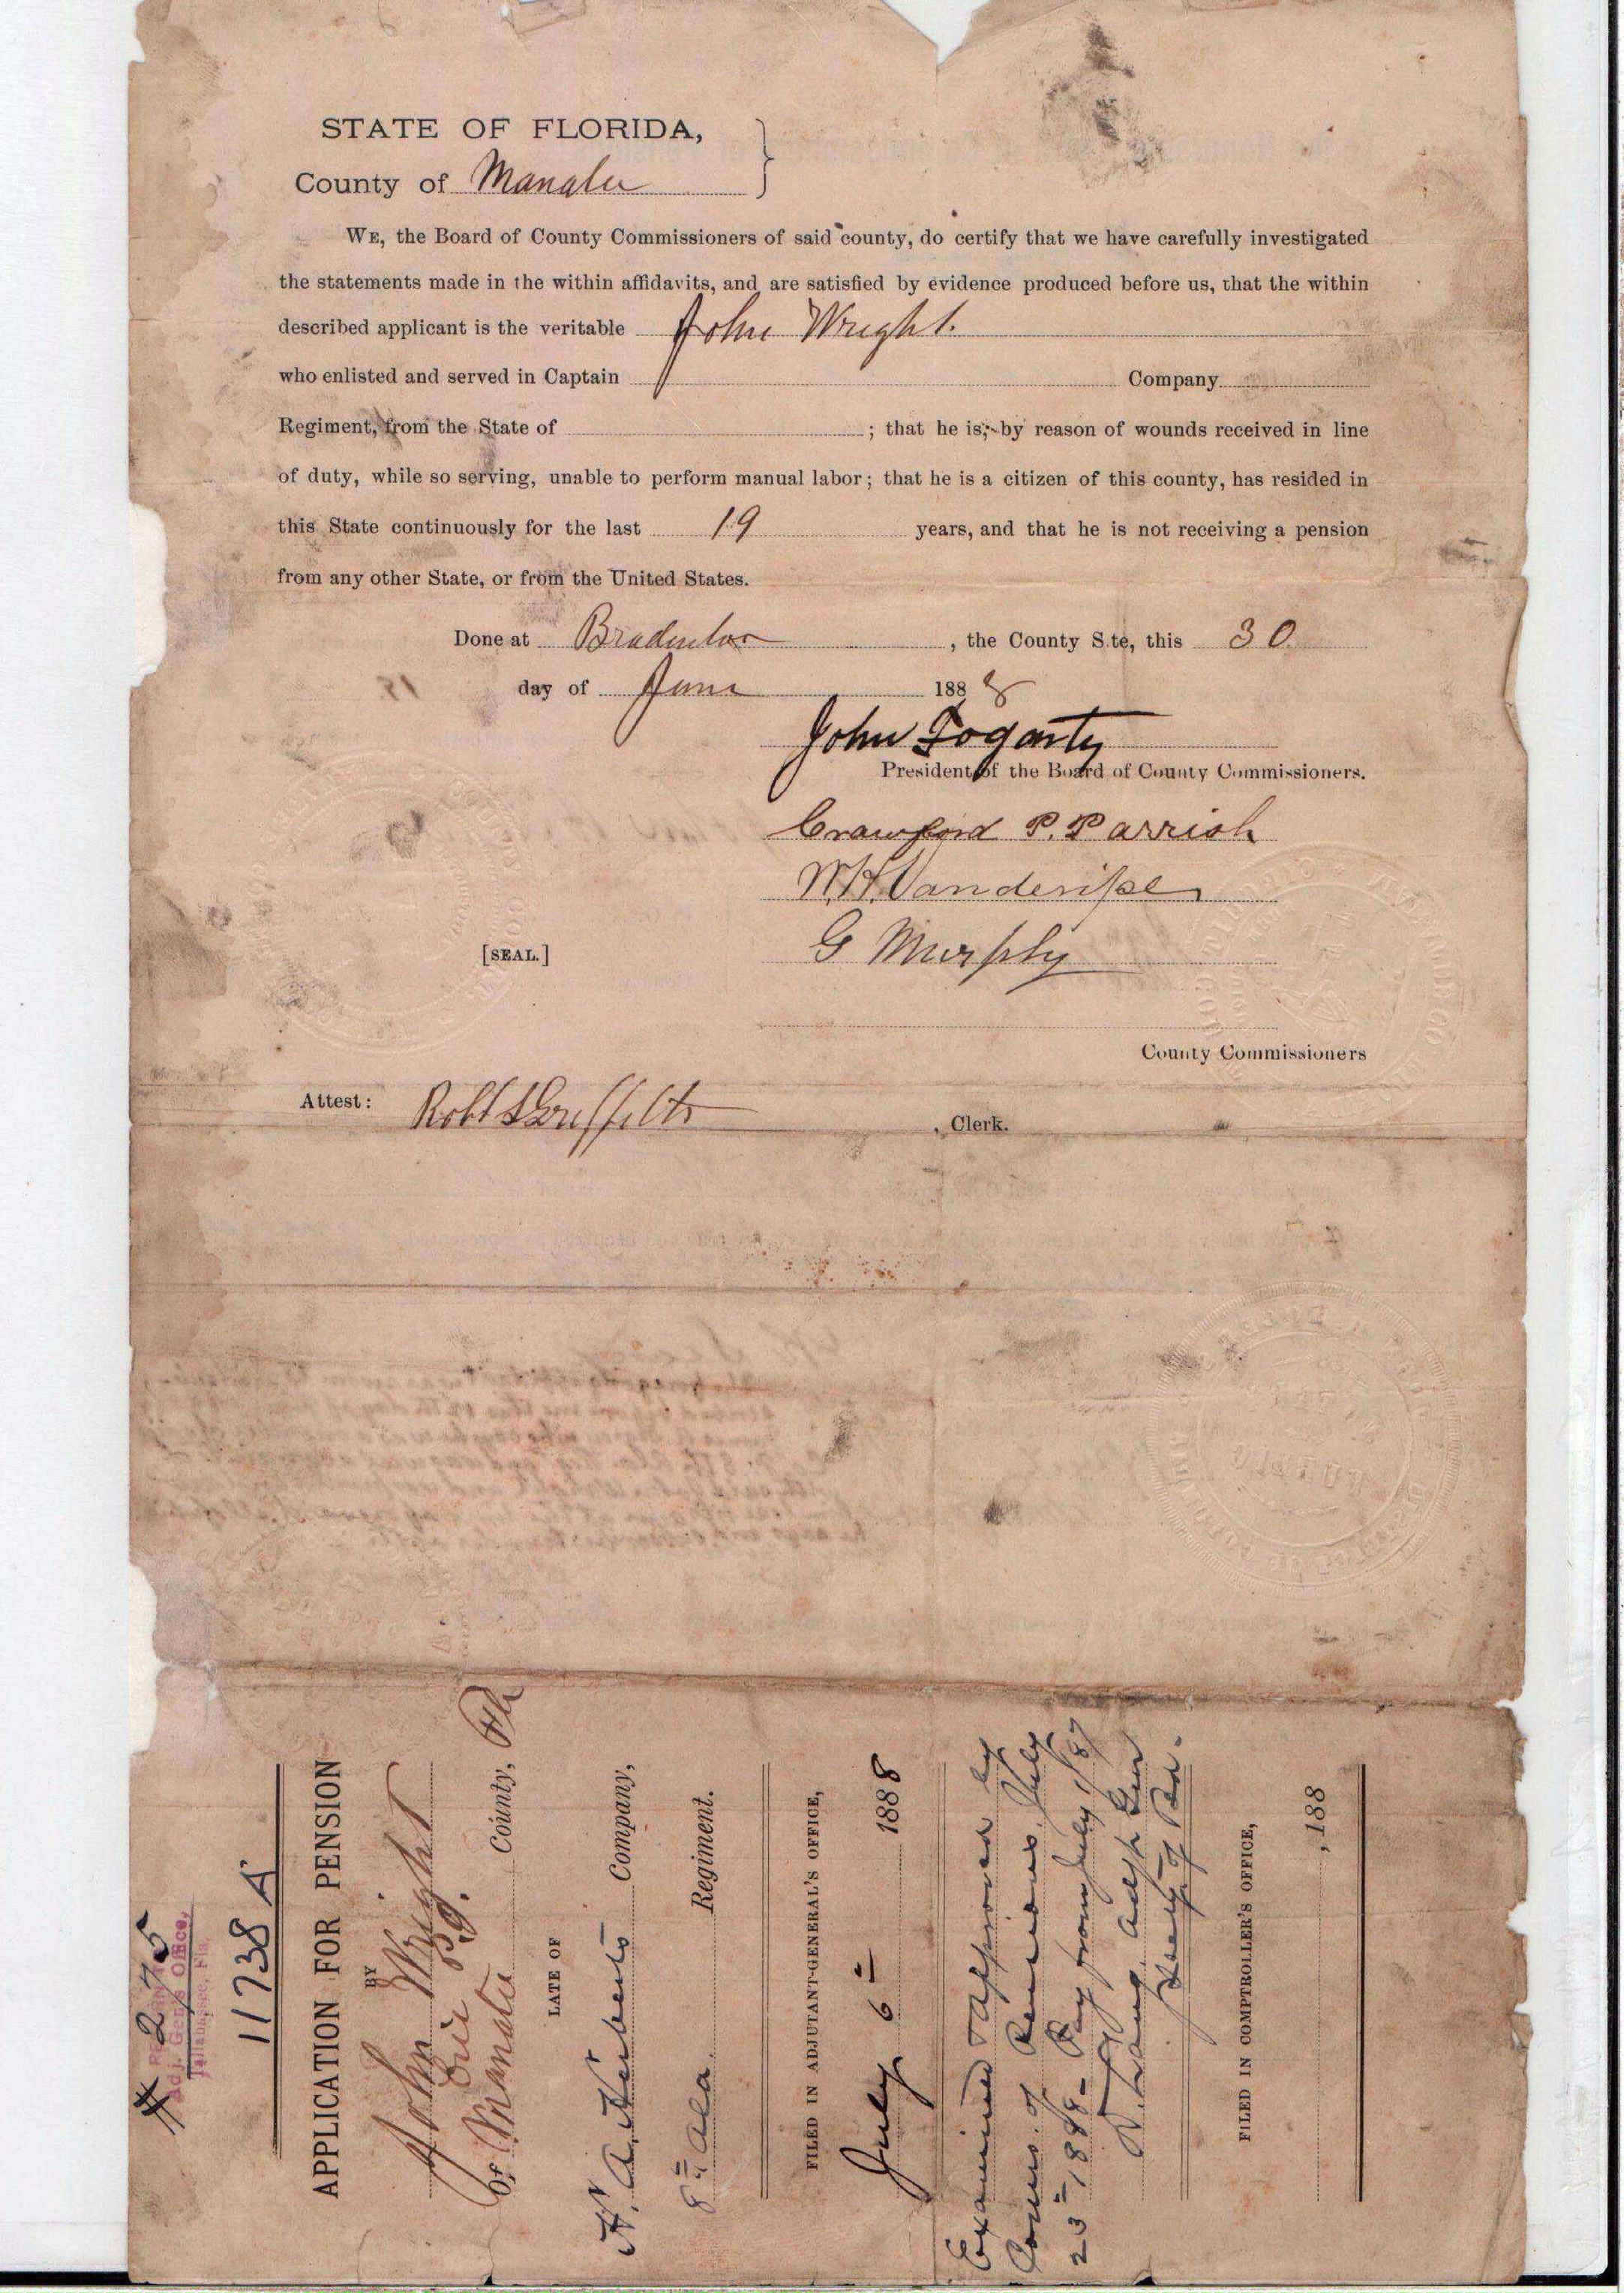 STATE OF FLORIDA,
County of Manatee
WE, the Board of County Commissioners of said county, do certify that we have carefully investigated
the statements made in the within affidavits, and are satisfied by evidence produced before us, that the within
described applicant is the veritable John Wright.
who enlisted and served in Captain Company
Regiment, from the State of ; that he is, by reason of wounds received in line
of duty, while so serving, unable to perform manual labor; that he is a citizen of this county, has resided in
this State continuously for the last 19 years, and that he is not receiving a pension
from any other State, or from the United States.
Done at Bradenton, the County S.te, this 30
day of June 1888
John Fogarty
President of the Board of County Commissioners.
Crawford P. Parrish
W.H. Vanderipe
G Murphy
[SEAL.]
County Commissioners
Attest: Robt S Griffith, Clerk.
# 275
Adj. Gen's Office,
Tallahassee, Fla.
11738 A
APPLICATION FOR PENSION
BY
John Wright
Erie P.O.
of Manatee County, Fla
LATE OF
Company,
8th Ala. Regiment.
FILED IN ADJUTANT-GENERAL'S OFFICE,
July 6= 1888
Examined & approved by
Coms. of Pensions July
23= 1888 - Pay from July 1/87
D. Lang Adjt Gen
Secy of Bd.
FILED IN COMPTROLLER'S OFFICE,
, 188